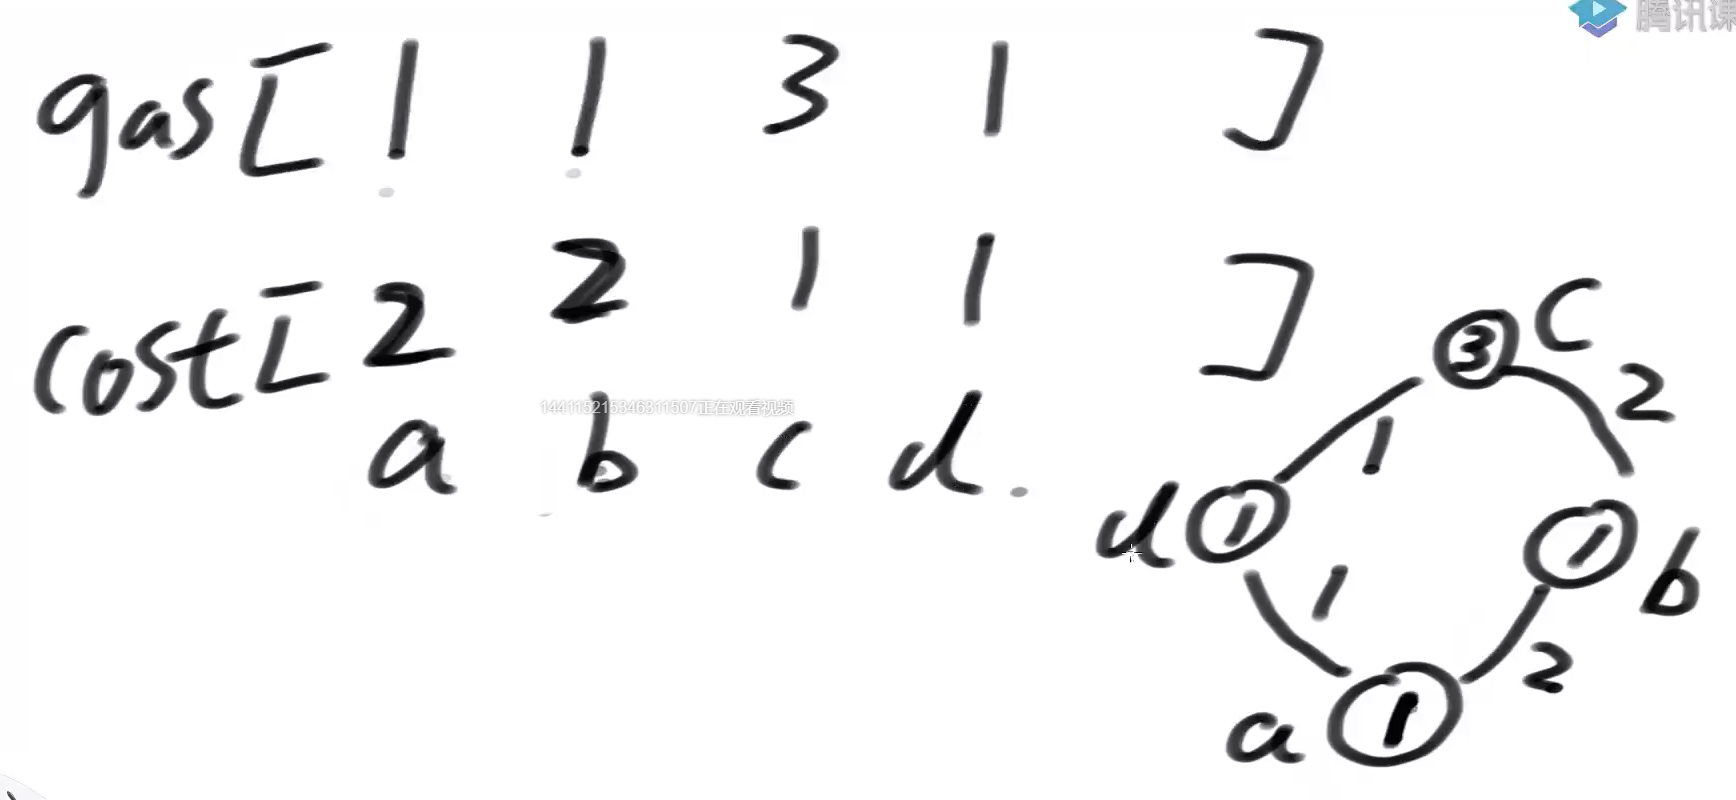 腾讯课
gas[ 1 1 3 1 ]
cost[ 2 2 1 1 ]
144115215346311507正在观看视频
a b c d.
3 C
2
1
d 1
1 b
1
2
a 1